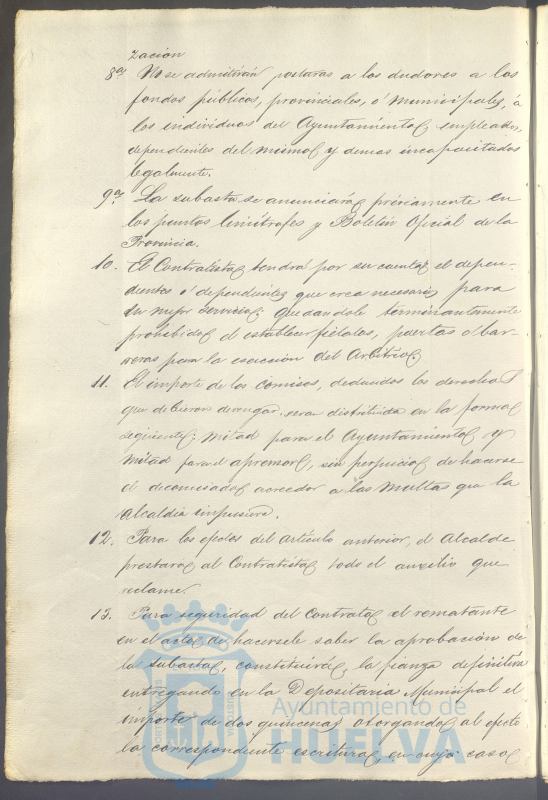 zacion
8ª No se admitirán posturas a los deudores a los
fondos públicos, provinciales, ó municipales, á
los individuos del Ayuntamiento empleados,
dependientes del mismo y demas incapacitados
legalmente.
9ª La subasta se anunciará préviamente en
los puntos limítrofes y Boletin Oficial de la
Provincia.
10. El Contratista tendrá por su cuenta el depen-
diente ó dependientes que crea necesario para
su mejor servicio; quedandole terminantemente
prohibido el establecer fielatos, puertas ó bar-
reras para la esaccion del Arbitrio
11. El importe de los comisos, deducidos los derechos
que debieron devengar, seran distribuida en la forma
siguiente; mitad para el Ayuntamiento y
mitad para el apresor, sin perjuicio de hacerse
el decomisado acreedor a las multas que la
Alcaldia impusiere.
12. Para los efectos del artículo anterior, el Alcalde
prestará al Contratista todo el auxilio que
reclame.
13. Para seguridad del Contrato el rematante
en el acto de hacersele saber la aprobacion de
la subasta, constituirá la fianza definitiva
entregando en la Depositaria Municipal el
importe de dos quincenas otorgando al efecto
la correspondiente escritura, en cuyo caso
Ayuntamiento de
HUELVA